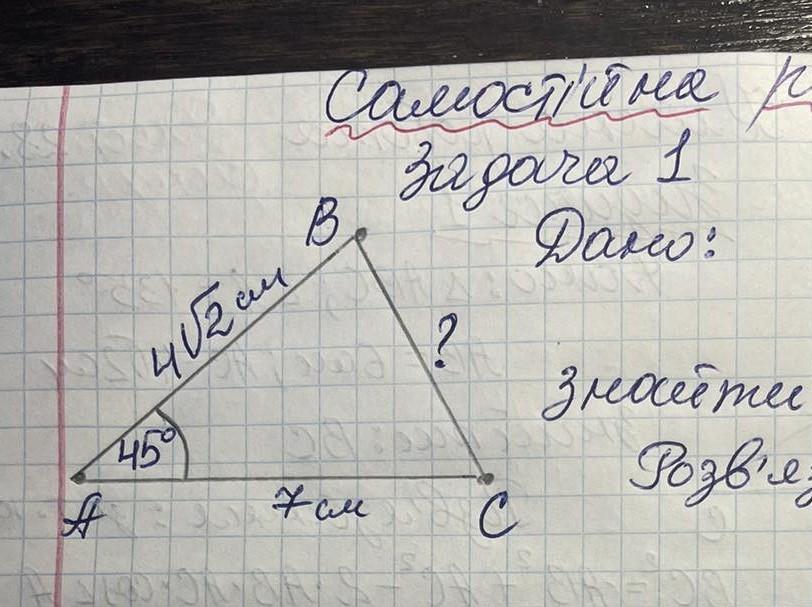 Самостійна
Задача 1
Дано:
B
4√2 см
?
45°
A
7 см
C
Знайти
Розв'яз